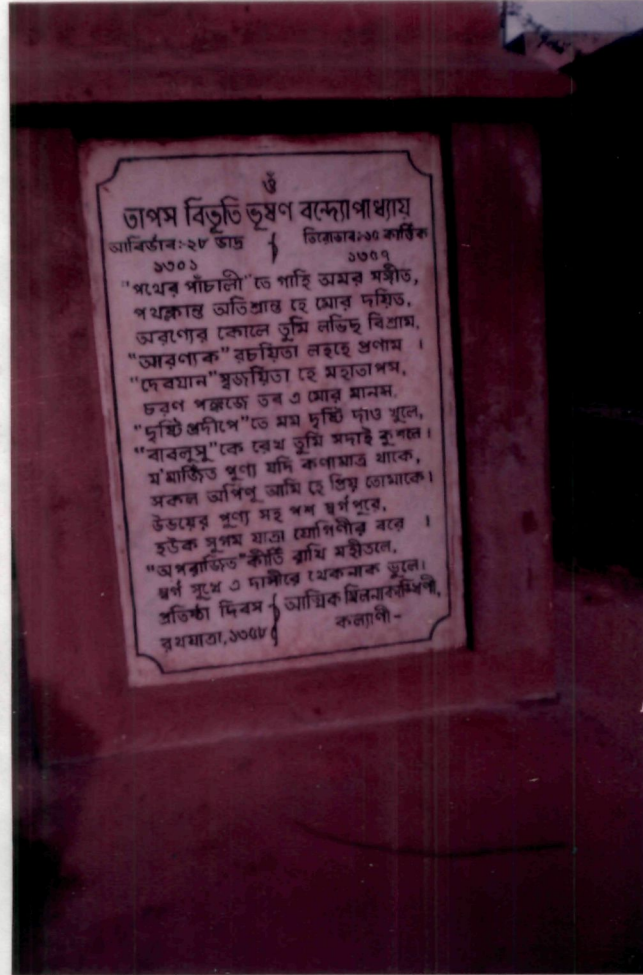 ওঁ
তাপস বিভূতি ভূষণ বন্দ্যোপাধ্যায়
আবির্ভাব:-২৮ ভাদ্র ১৩০১
তিরোভাব:-১৭ কার্ত্তিক ১৩৫৭
"পথের পাঁচালী"তে গাহি অমর সঙ্গীত,
পথক্লান্ত অতিশ্রান্ত হে মোর দয়িত,
অরণ্যের কোলে তুমি লভিছ বিশ্রাম,
"আরণ্যক" রচয়িতা লহহে প্রণাম ।
"দেবযান" সৃজয়িতা হে মহাতাপস,
চরণ পঙ্কজে তব এ মোর মানস,
"দৃষ্টি প্রদীপে"তে মম দৃষ্টি দাও খুলে,
"বাবলুসু"কে রেখ তুমি সদাই কুশলে।
ম'মার্জিত পুণ্য যদি কণামাত্র থাকে,
সকল অর্পিণু আমি হে প্রিয় তোমাকে।
উভয়ের পুণ্য সহ পশ স্বর্গপুরে,
হউক সুগম যাত্রা যোগিণীর বরে ।
"অপরাজিত" কীর্তি রাখি মহীতলে,
স্বর্গ সুখে এ দাসীরে থেকনাক ভুলে।
প্রতিষ্ঠা দিবস -
রথযাত্রা, ১৩৫৮
আত্মিক মিলনাকাঙ্ক্ষিণী,
কল্যাণী -